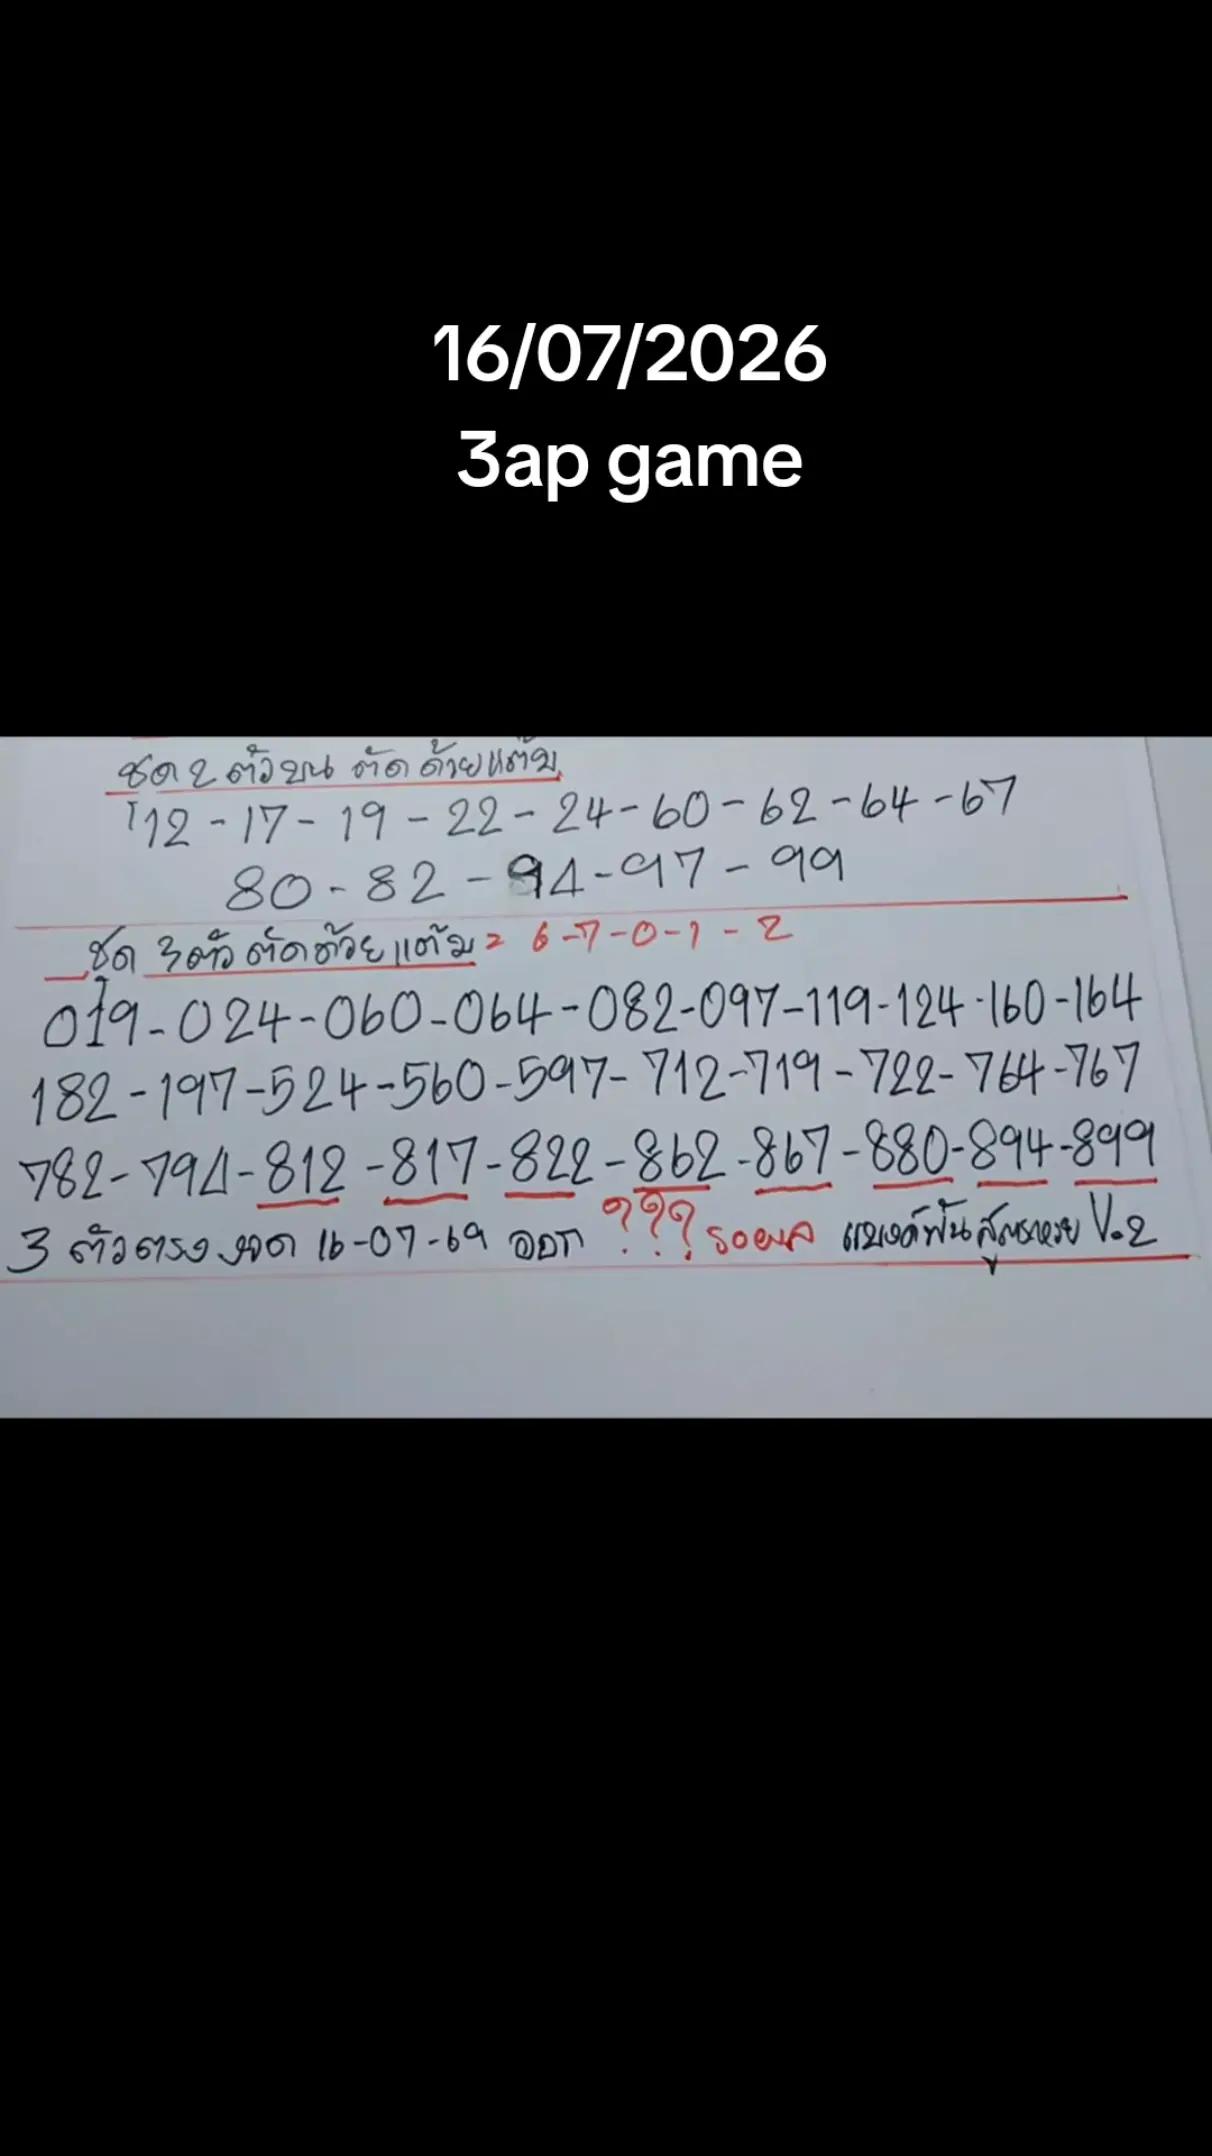 16/07/2026
3ap game
ชุด 2 ตัวบน ตัดด้วยแต้ม
12-17-19-22-24-60-62-64-67
80-82-94-97-99
ชุด 3 ตัว ตัดด้วยแต้ม = 6-7-0-1-2
019-024-060-064-082-097-119-124-160-164
182-197-524-560-597-712-719-722-764-767
782-794-812-817-822-862-867-880-894-899
3 ตัวตรง งวด 16-07-69 ออก ??? รอผล แบงค์พันสูตรหวย V.2